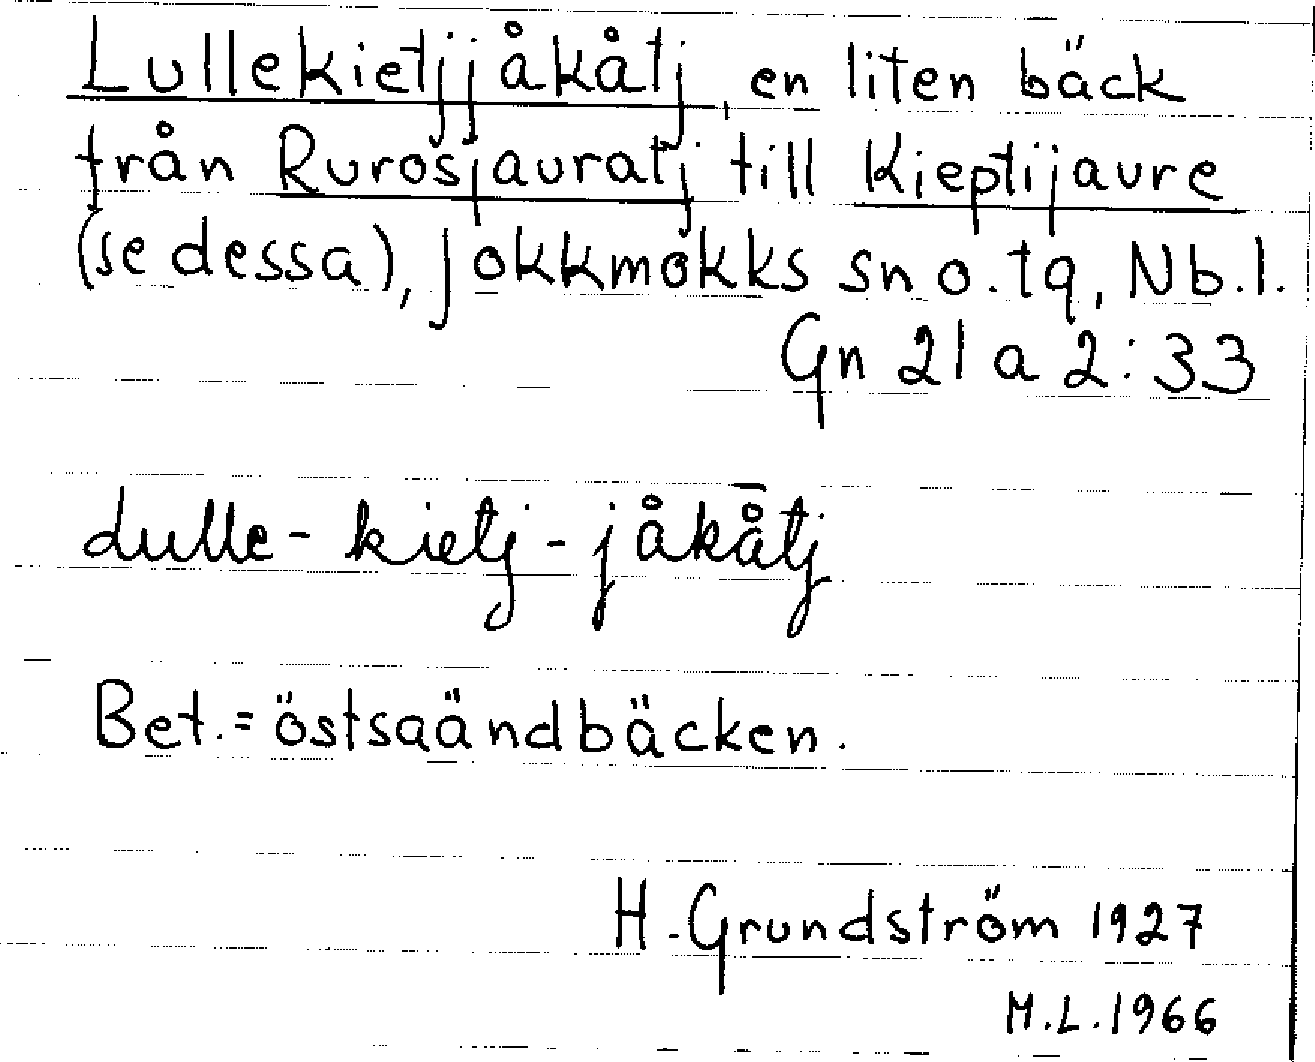 Lullekietjjåkåtj, en liten bäck
från Rurosjauratj till Kieptijaure
(se dessa), Jokkmokks sn o. tg, Nb.l.
Gn 21 a 2:33
Lulle-kietj-jåkå̄tj
Bet.= östsaändbäcken.
H. Grundström 1927
M.L. 1966